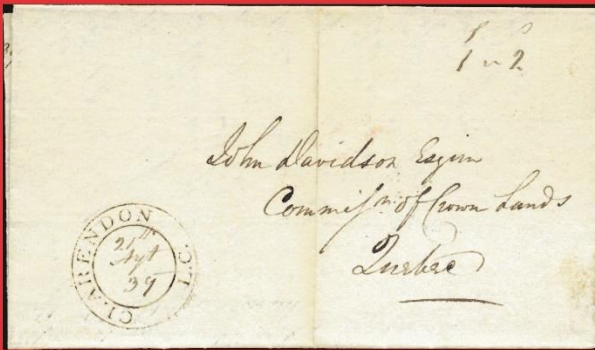 1 2
John Davidson Esqire
Commissn. of Crown Lands
Quebec
CLARENDON L.C.
21th
Sept
39